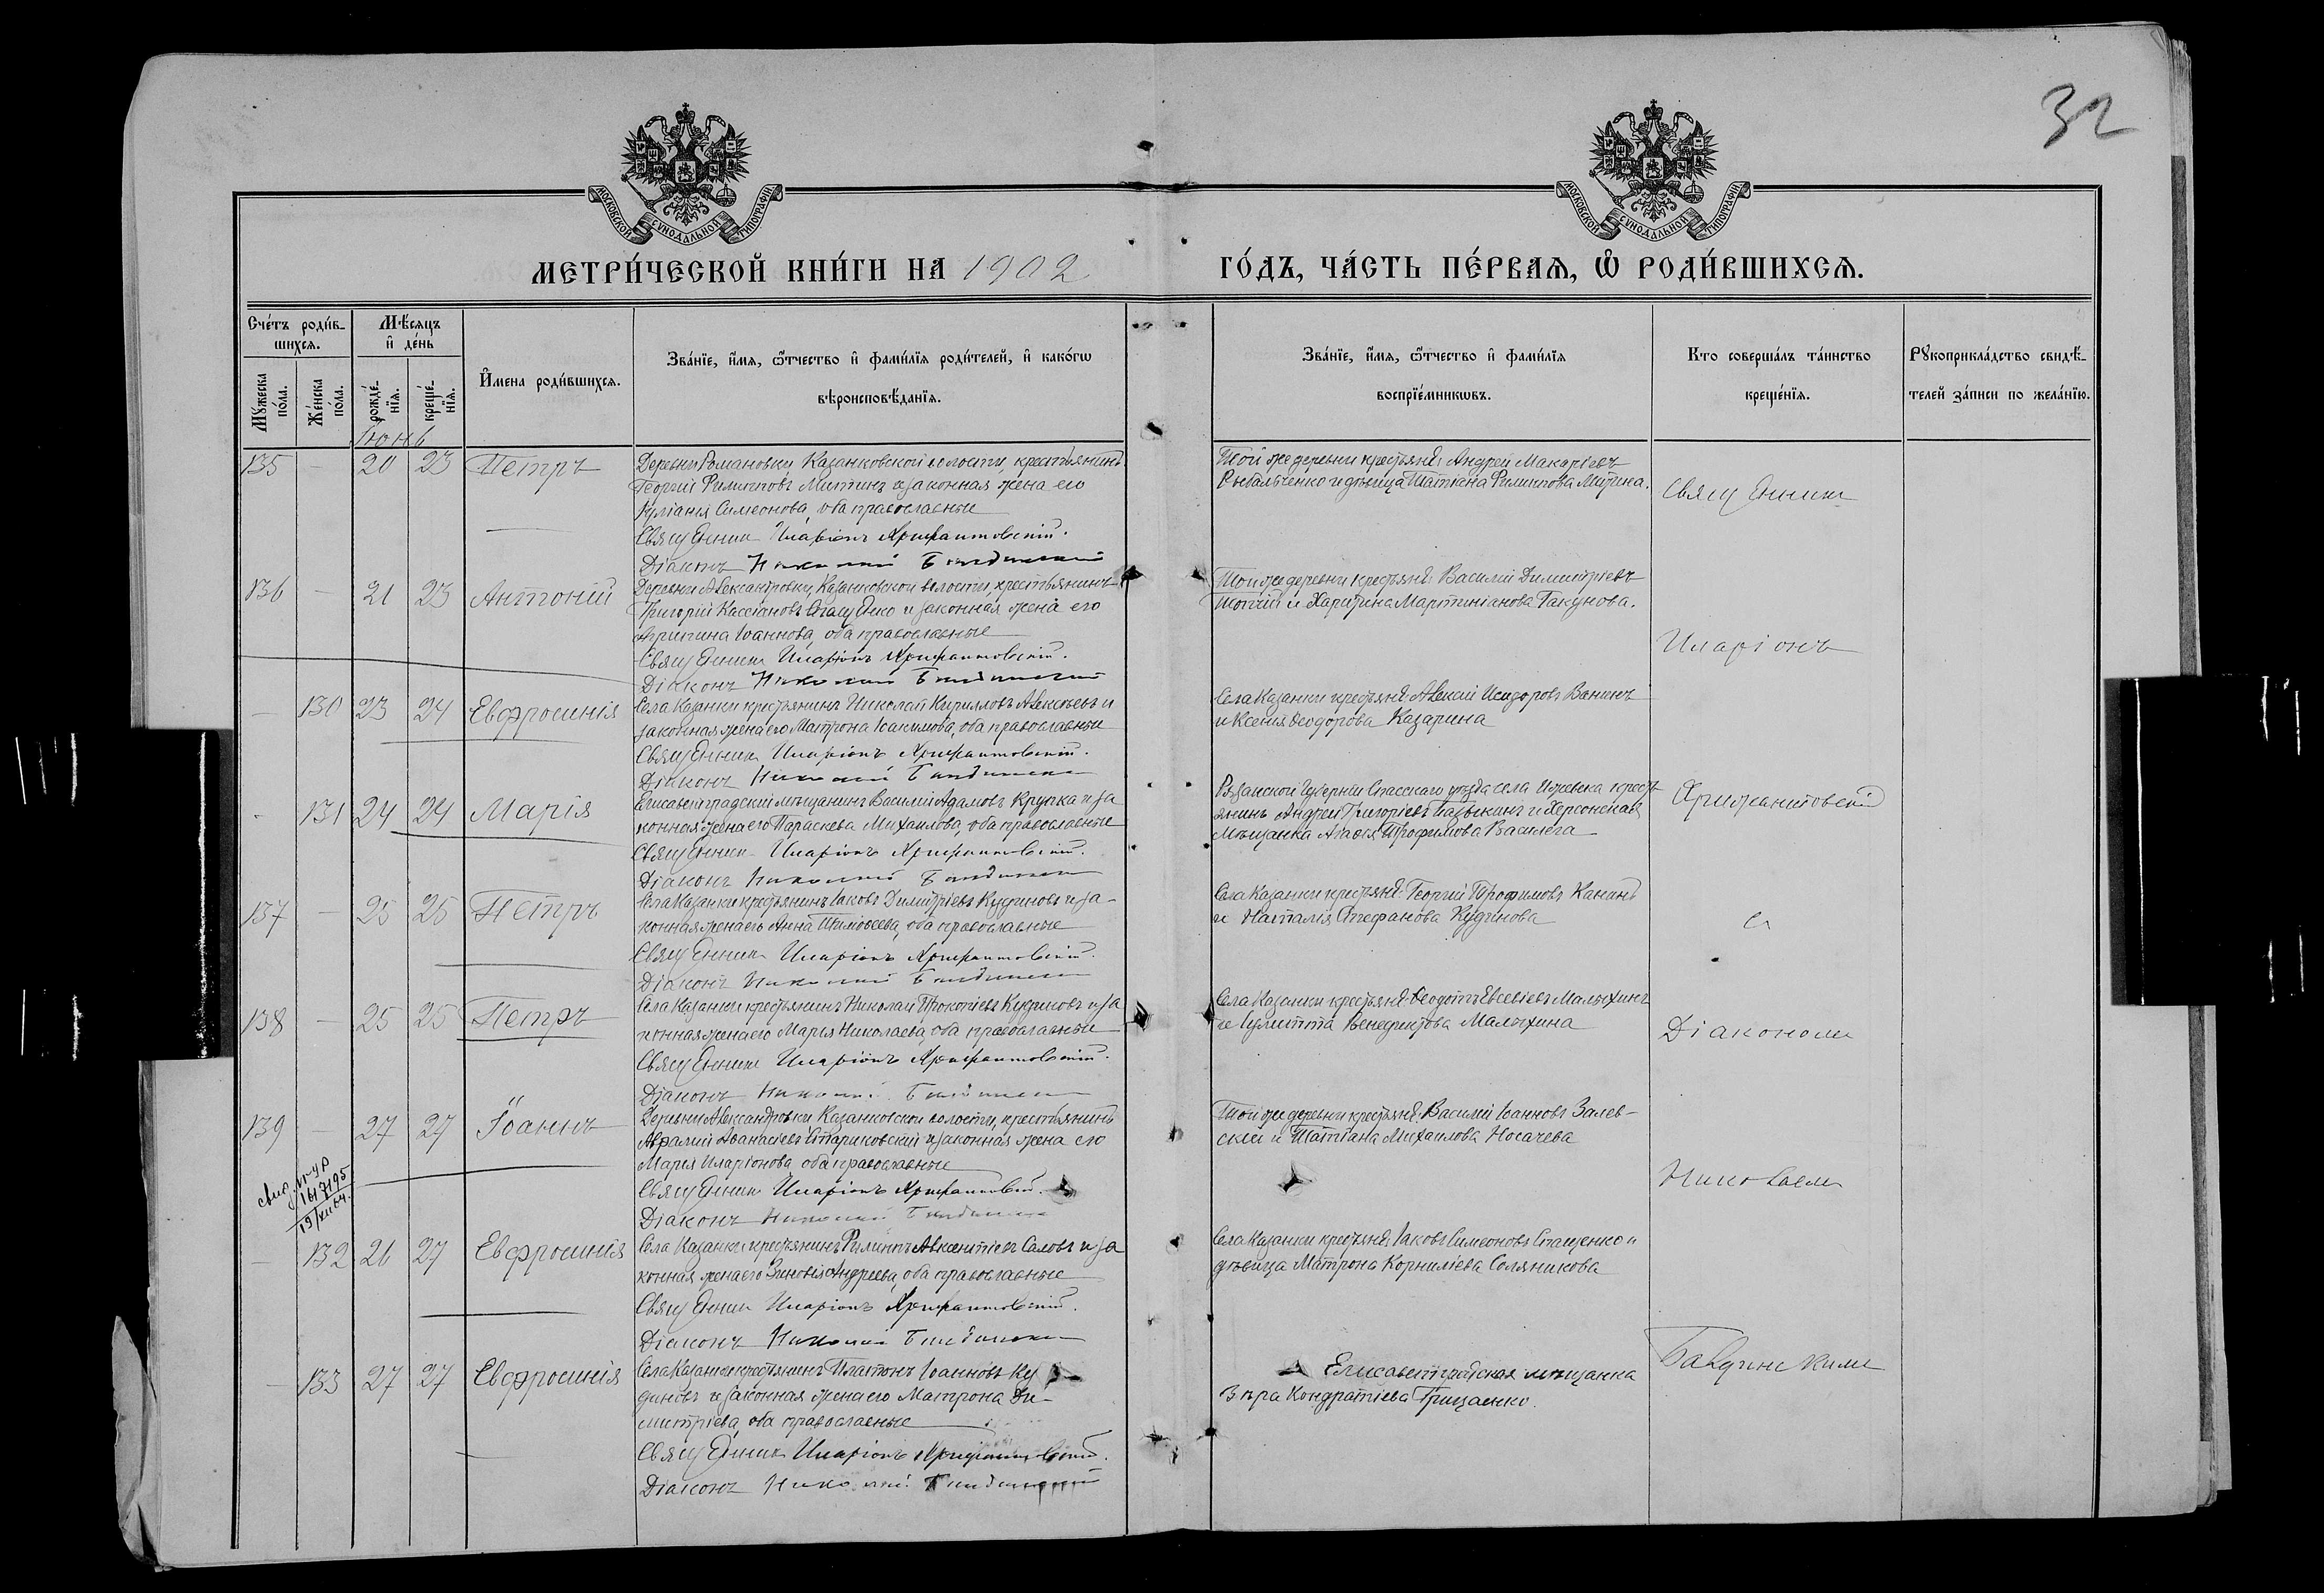 32
МОСКОВСКОЙ СѴНОДАЛЬНОЙ ТИПОГРАФІИ
МОСКОВСКОЙ СѴНОДАЛЬНОЙ ТИПОГРАФІИ
МЕТРИ́ЧЕСКОЙ КНИ́ГИ НА 1902
ГО́ДЪ, ЧА́СТЬ ПЕ́РВАѦ, Ѽ РОДИ́ВШИХСѦ.
Сче́тъ роди́в-
шихсѧ.
Мꙋжеска по́ла.
Же́нска по́ла.
Мѣ́сѧцъ
и҆ де́нь
рожде́-
нїѧ.
креще́-
нїѧ.
И҆мена роди́вшихсѧ.
Зва́нїе, и҆́мѧ, ѻ҆́тчество и҆ фами́лїѧ роди́телей, и҆ како́гѡ
вѣроисповѣ́данїѧ.
Зва́нїе, и҆́мѧ, ѻ҆́тчество и҆ фами́лїѧ
воспрїе́мникѡвъ.
Кто соверша́лъ та́инство
креще́нїѧ.
Рꙋкоприкла́дство свидѣ́-
телей за́писи по жела́нїю.
Іюнь
135 — 20 23 Петръ
Деревни Романовки, Казанковской волости, крестьянинъ
Георгій Филипповъ Митинъ и законная жена его
Іуліанія Симеонова, оба православные
Священникъ Иларіонъ Хрисанфовскій.
Діаконъ Николай
Той же деревни крестьяне: Андрей Макаріевъ
Рыбальченко и дѣвица Татіана Филиппова Митина.
Священникъ
136 — 21 23 Антоній
Деревни Александровки, Казанковской волости, крестьянинъ
Григорій Кассіановъ и законная жена его
Агриппина Іоаннова, оба православные
Священникъ Иларіонъ
Діаконъ Николай
Той же деревни крестьяне: Василій Димитріевъ
и Харитина Мартиніанова Гакунова.
Иларіонъ
— 130 23 24 Евфросинія
Села Казанки крестьянинъ Николай Кирилловъ Алексѣевъ и
законная жена его Матрона Іоакимова, оба православные
Священникъ Иларіонъ
Діаконъ Николай
Села Казанки крестьяне: Алексій Исидоровъ Ванинъ
и Ксенія Ѳеодорова Казарина
131 24 24 Марія
Елисаветградскій мѣщанинъ Василій Адамовъ Крупка и за
конная жена его Параскева Михаилова, оба православные
Священникъ Иларіонъ
Діаконъ Николай
Рязанской губерніи Спасскаго уѣзда села Ижевска кресть
янинъ Андрей Григоріевъ и Херсонская
Мѣщанка Агафія Трофимова Василега
137 — 25 25 Петръ
Села Казанки крестьянинъ Іаковъ Димитріевъ Кудиновъ и за-
конная жена его Анна Тимоѳеева, оба православные
Священникъ Иларіонъ
Діаконъ Николай
Села Казанки крестьяне: Георгій Трофимовъ Канинъ
и Наталія Стефанова Кудинова
съ
138 — 25 25 Петръ
Села Казанки крестьянинъ Николай Прокопіевъ Кудиновъ и за
конная жена его Марія Николаева, оба православные
Священникъ Иларіонъ
Діаконъ Николай
Села Казанки крестьяне: Ѳеодотъ Евсевіевъ Малыхинъ
и Іулитта Венедиктова Малыхина
Діакономъ
139 — 27 27 Іоаннъ
Деревни Александровки Казанковской волости, крестьянинъ
Аѳанасіевъ Стариковскій и законная жена его
Марія Иларіонова оба православные
Священникъ Иларіонъ
Діаконъ Николай
Той же деревни крестьяне: Василій Іоанновъ Залев-
скій и Татіана Михаилова Носачева
Николаемъ
— 132 26 27 Евфросинія
Села Казанки крестьянинъ Филиппъ Авксентіевъ Саловъ и за
конная жена его Зиновія Андреева, оба православные
Священникъ Иларіонъ
Діаконъ Николай
Села Казанки крестьяне: Іаковъ Симеоновъ Стащенко и
дѣвица Матрона Корниліева Солянникова
— 133 27 27 Евфросинія
Села Казанки крестьянинъ Платонъ Іоанновъ Ку
диновъ и законная жена его Матрона Ди-
митріева, оба православные
Священникъ Иларіонъ
Діаконъ Николай
Елисаветградская мѣщанка
Вѣра Кондратіева Грищенко.